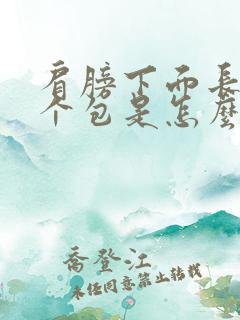 肩膀下面長
个包是怎麼
喬登江
未经同意禁止转载